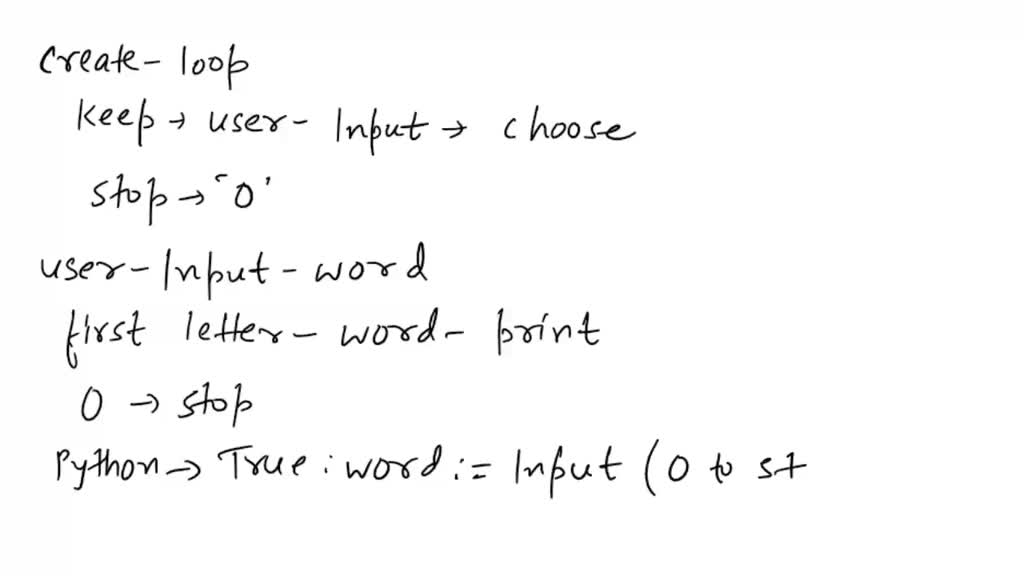 create - loop
keep → user - Input → choose
stop → '0'
user - Input - word
first letter - word - print
0 → stop
Python → True : word := Input (0 to st